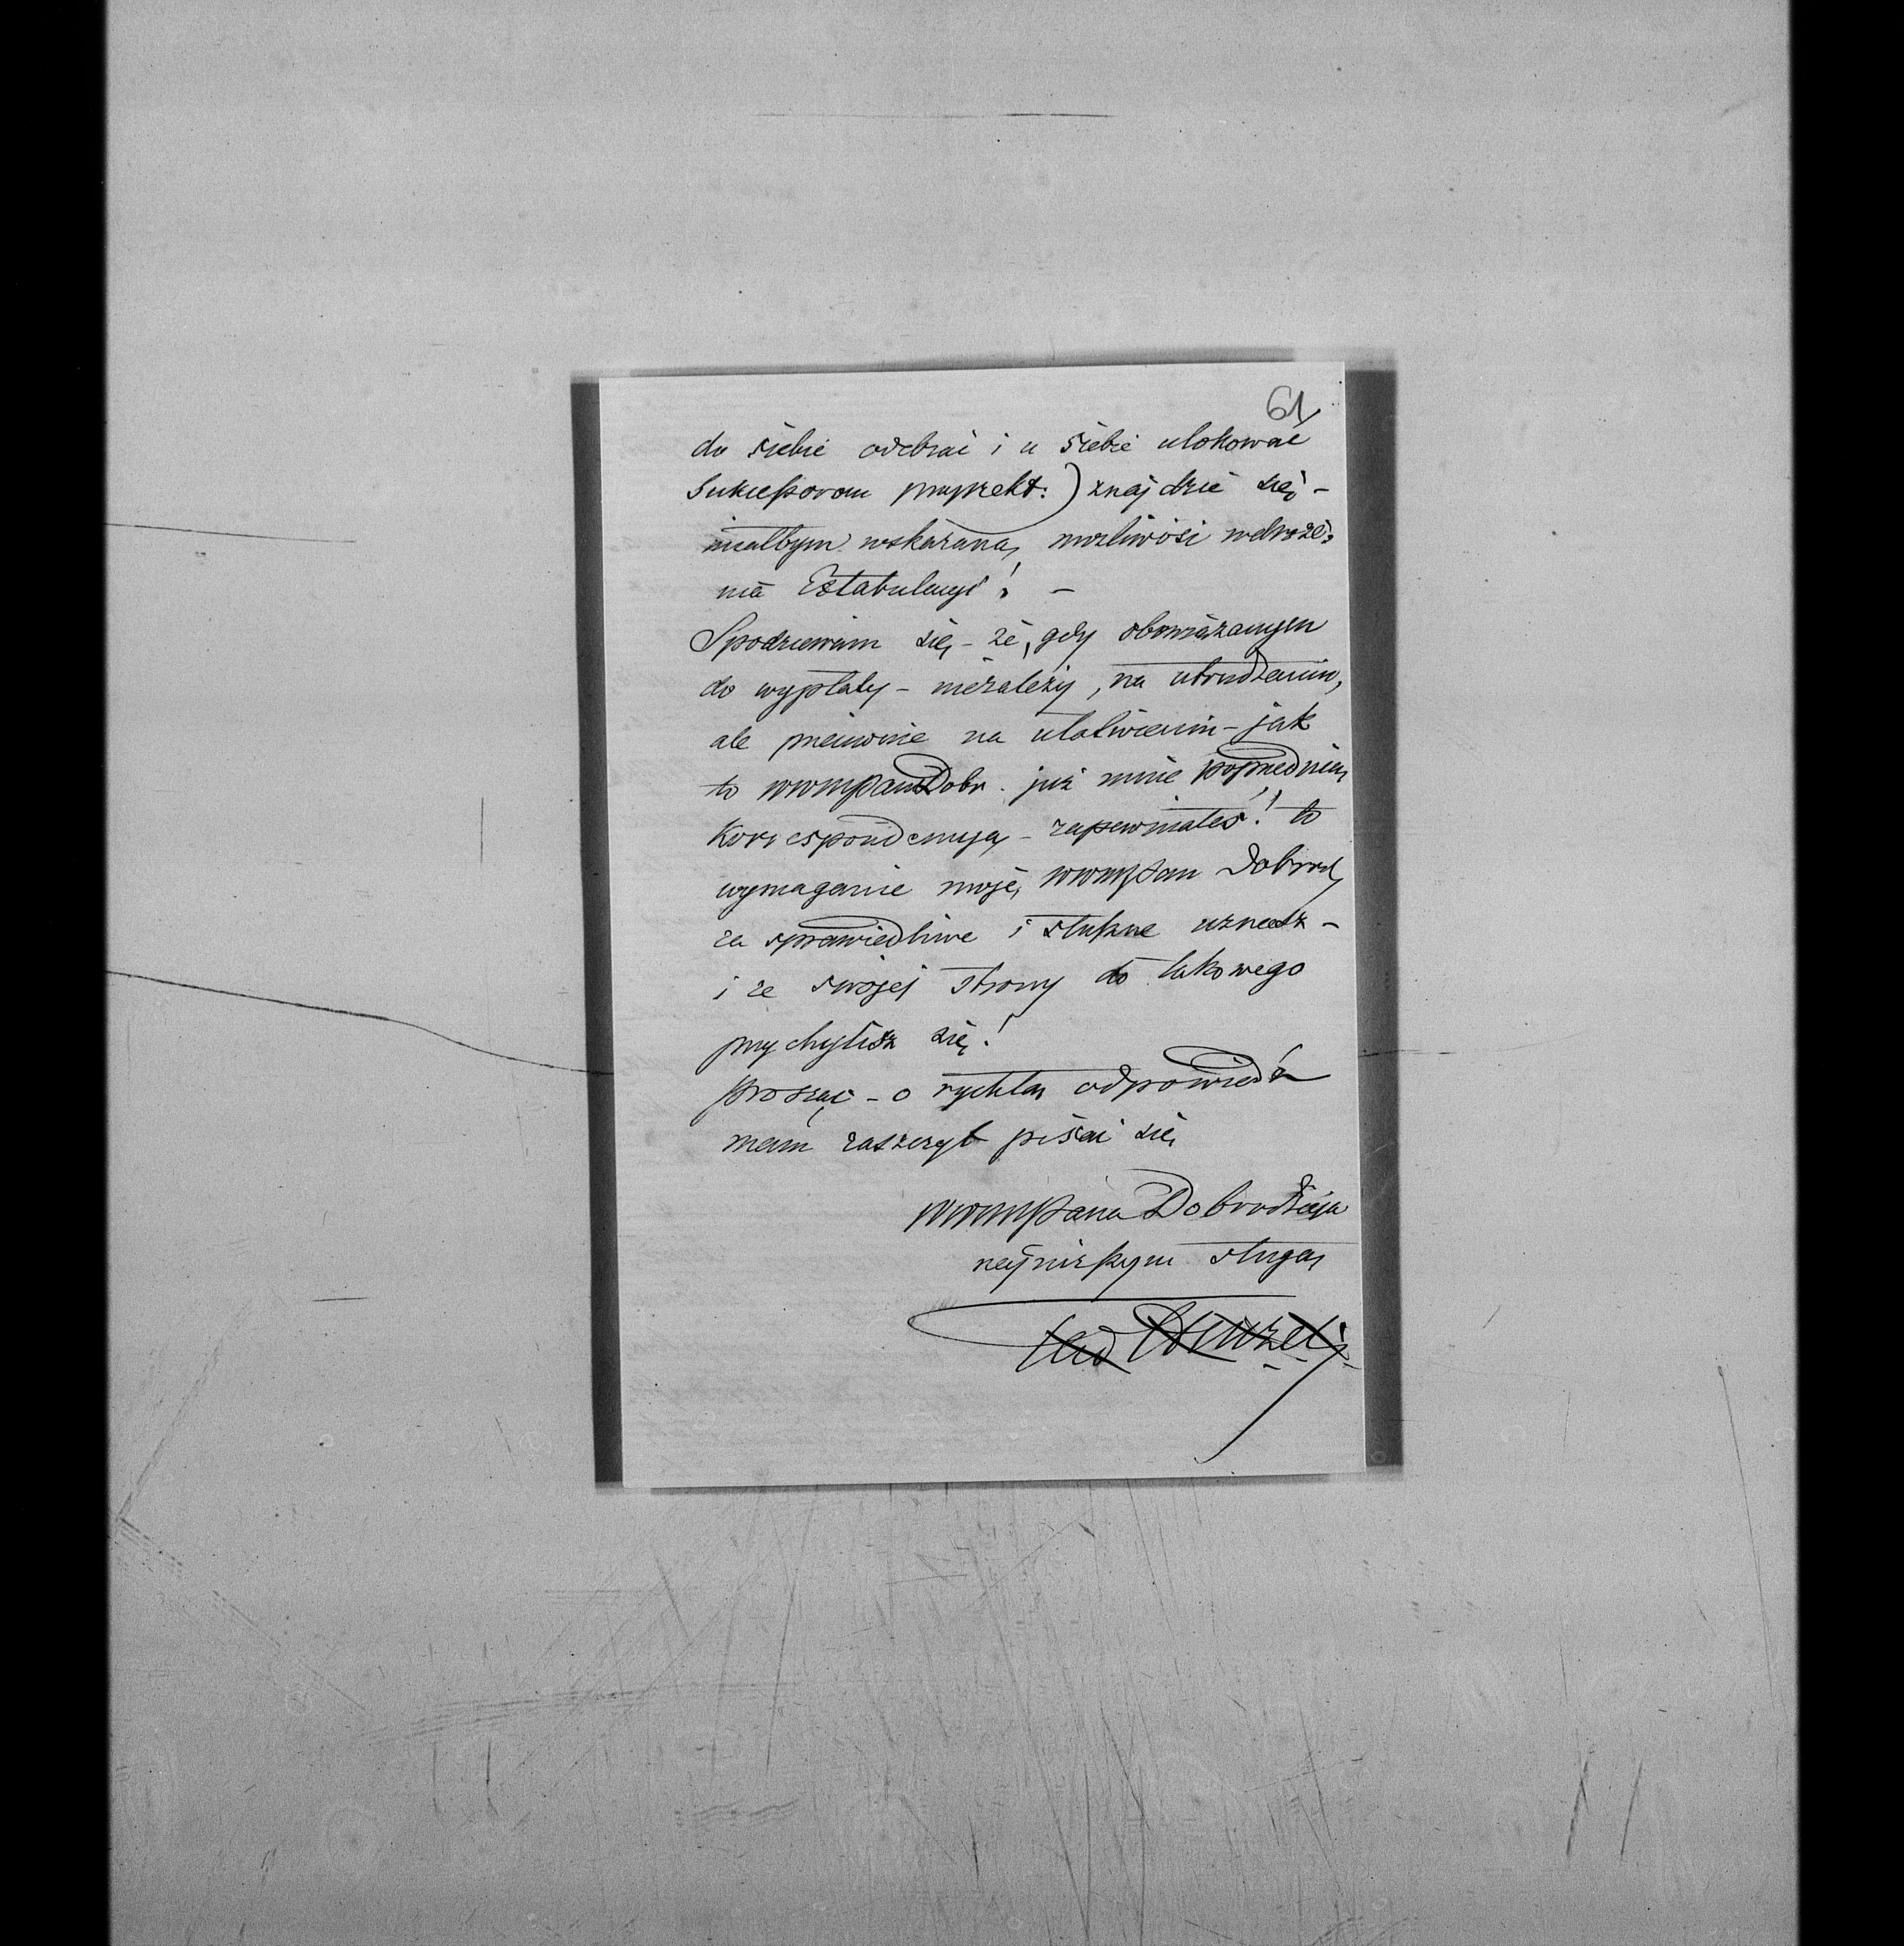 61
do siebie odebrać i u siebie ulokować
Sukceſsorom przyrzekł:) znajdzie się –
miałbym wskazaną możliwość wdroże:
nia Extabulacyi! –
Spodziewam się – że, gdy obowiązanym
do wypłaty – niezależy, na utrudzeniu,
ale pmeiwnie na ułatwieniu – jak
to WWMPan Dobr. już mnie poprzednią
Korrespondencyą – zapewniałeś! to
wymaganie moje, WWMPan Dobrodz
za sprawiedliwe i słuſzne uznasz –
i ze swojej strony do takowego
przychylisz się!
prosząc – o rychłą odpowiedź
mam zaszczyt pisać się
WWMPana Dobrodzieja
najniżſzym sługą